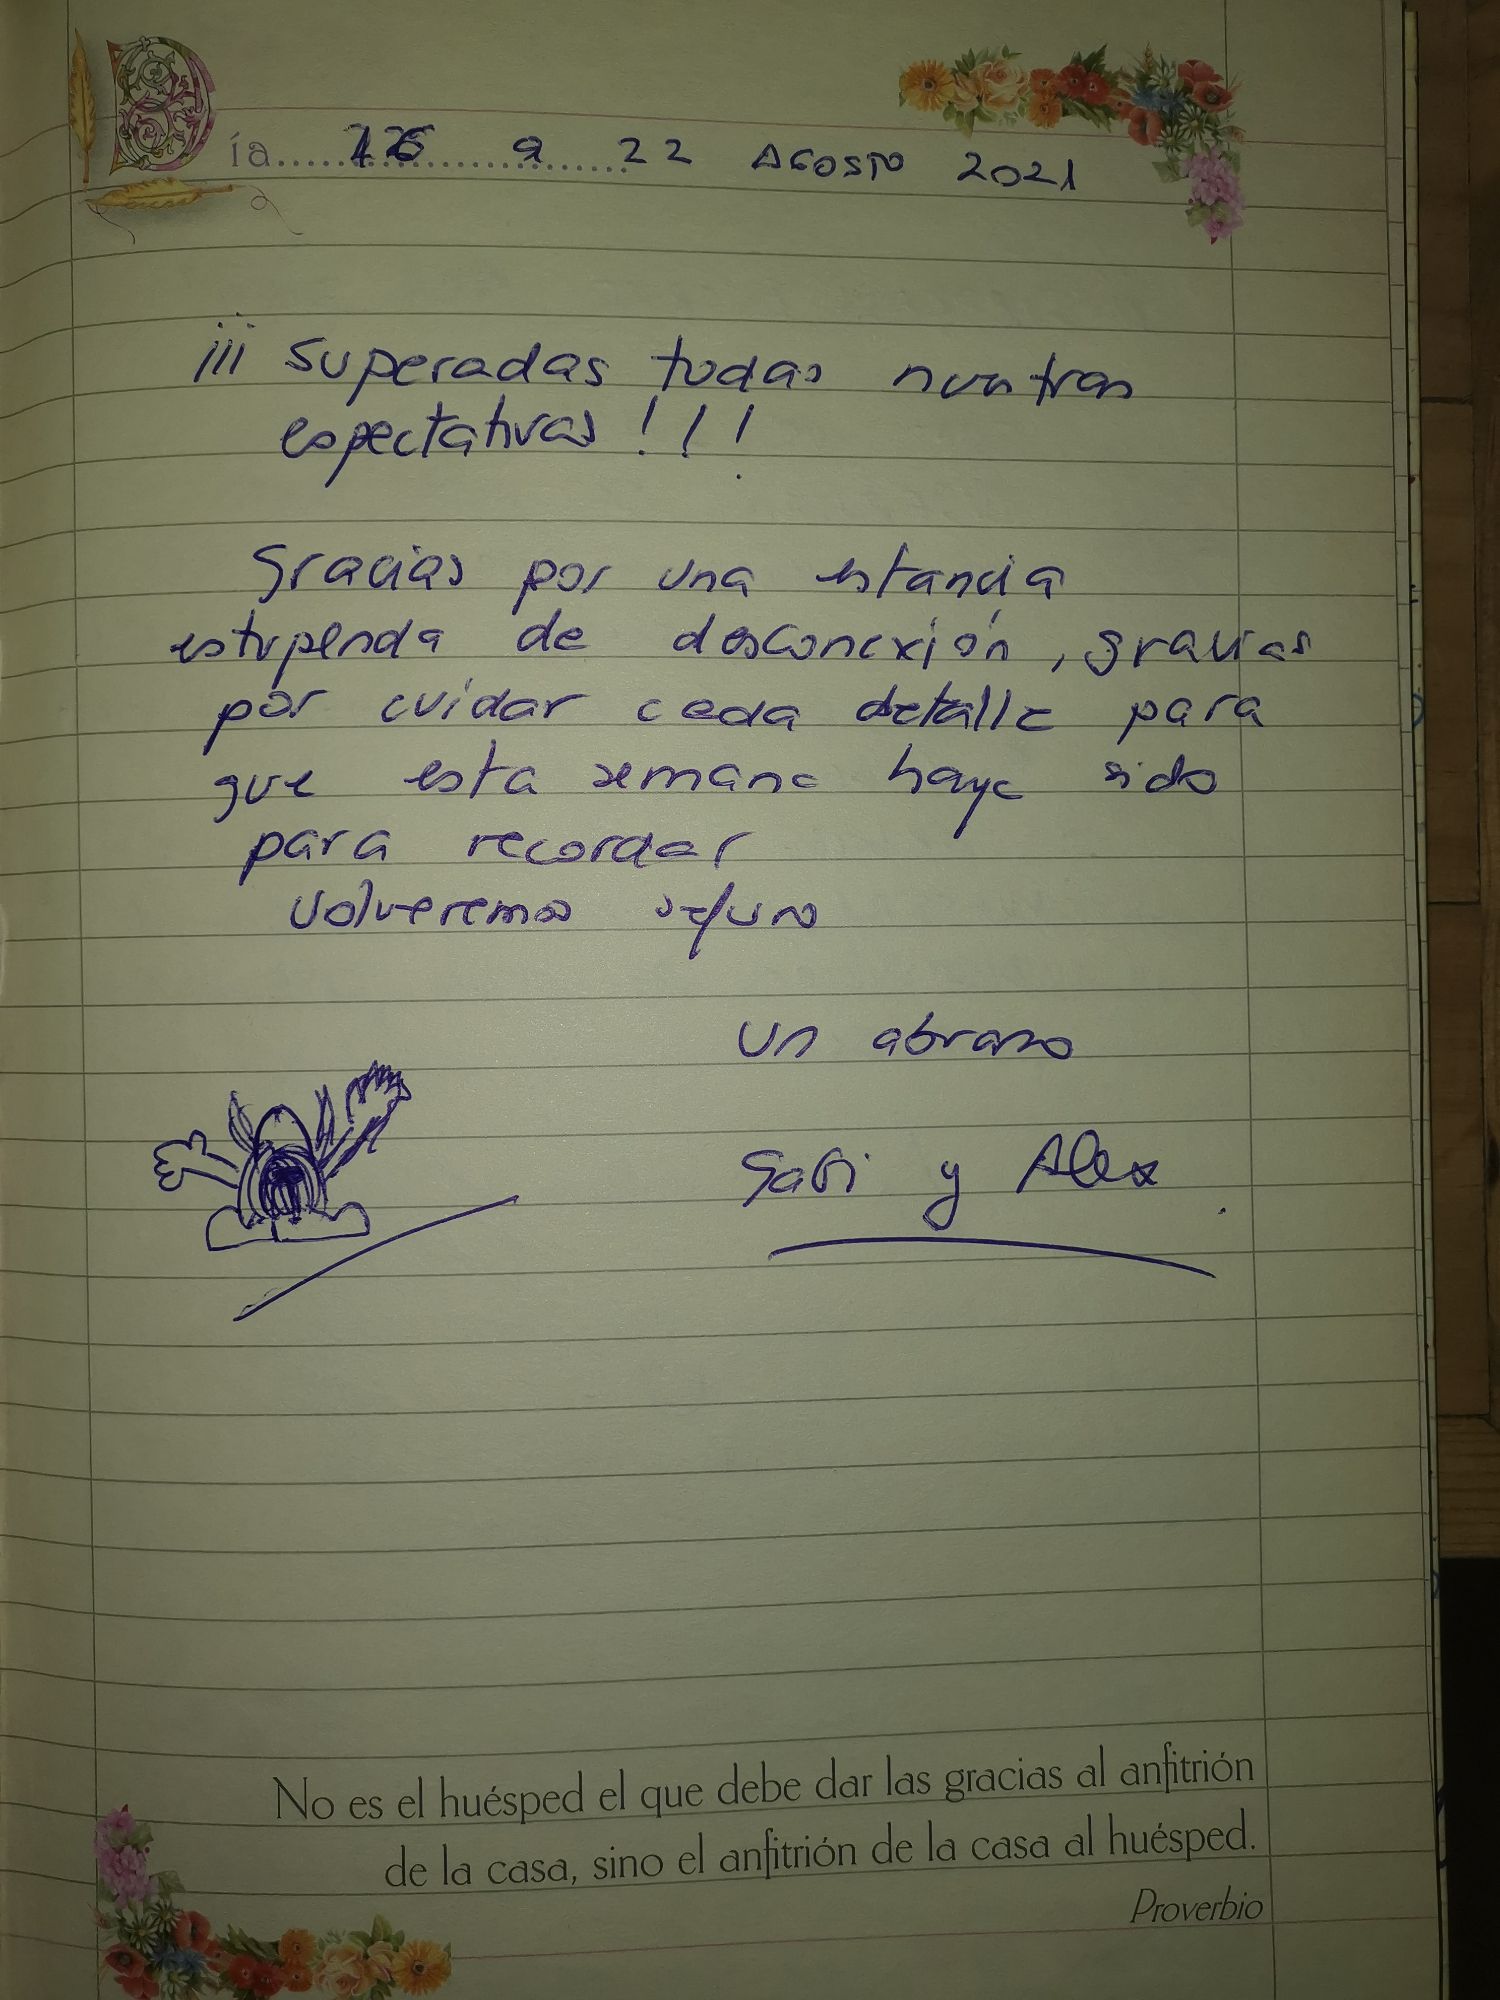 Día 16 a 22 AGOSTO 2021
¡¡¡ Superadas todas nuestras
espectativas!!!
Gracias por una estancia
estupenda de desconexión, gracias
por cuidar cada detalle para
que esta semana haya sido
para recordar
Volveremos seguro
Un abrazo
Gabi y Alex.
No es el huésped el que debe dar las gracias al anfitrión
de la casa, sino el anfitrión de la casa al huésped.
Proverbio